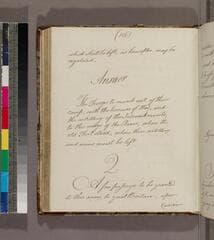 (106)
which shall be left, as hereafter may be
regulated.
Answer
The Troops to march out of their
camp with the honours of War, and
the artillery of the Intrenchments,
to the verge of the River, where the
Old Fort stood, where their artillery
and arms must be left.
2
A free passage to be granted
to this army to great Britain, upon